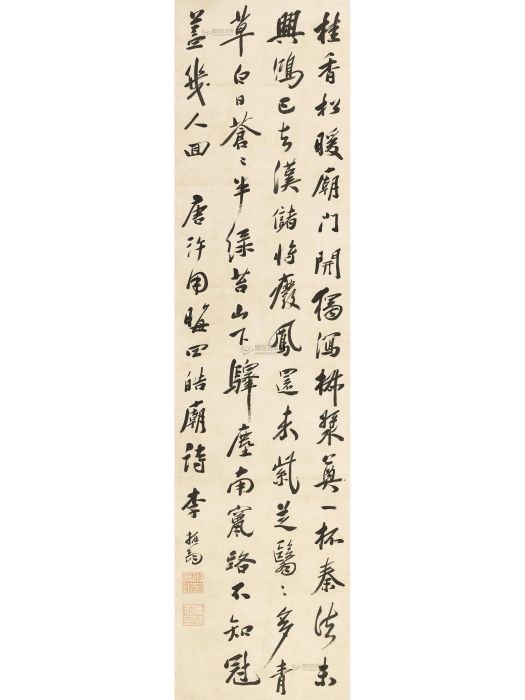 桂香松暖廟門開獨瀉椒漿奠一杯秦法未
興鴻已去漢儲將廢鳳還來紫芝翳〻多青
草白日蒼〻半綠苔山下驛塵南竄路不知冠
蓋幾人回 唐許用晦四皓廟詩 李振鈞